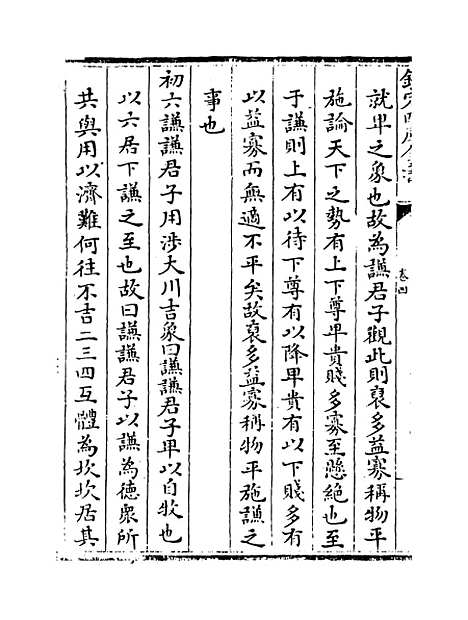 欽定四庫全書
卷四
就卑之象也故為謙君子觀此則裒多益寡稱物平
施論天下之勢有上下尊卑貴賤多寡至懸絶也至
于謙則上有以待下尊有以降卑貴有以下賤多有
以益寡而無適不平矣故裒多益寡稱物平施謙之
事也
初六謙謙君子用涉大川吉象曰謙謙君子卑以自牧也
以六居下謙之至也故曰謙謙君子以謙為德衆所
共與用以濟難何往不吉二三四互體為坎坎居其